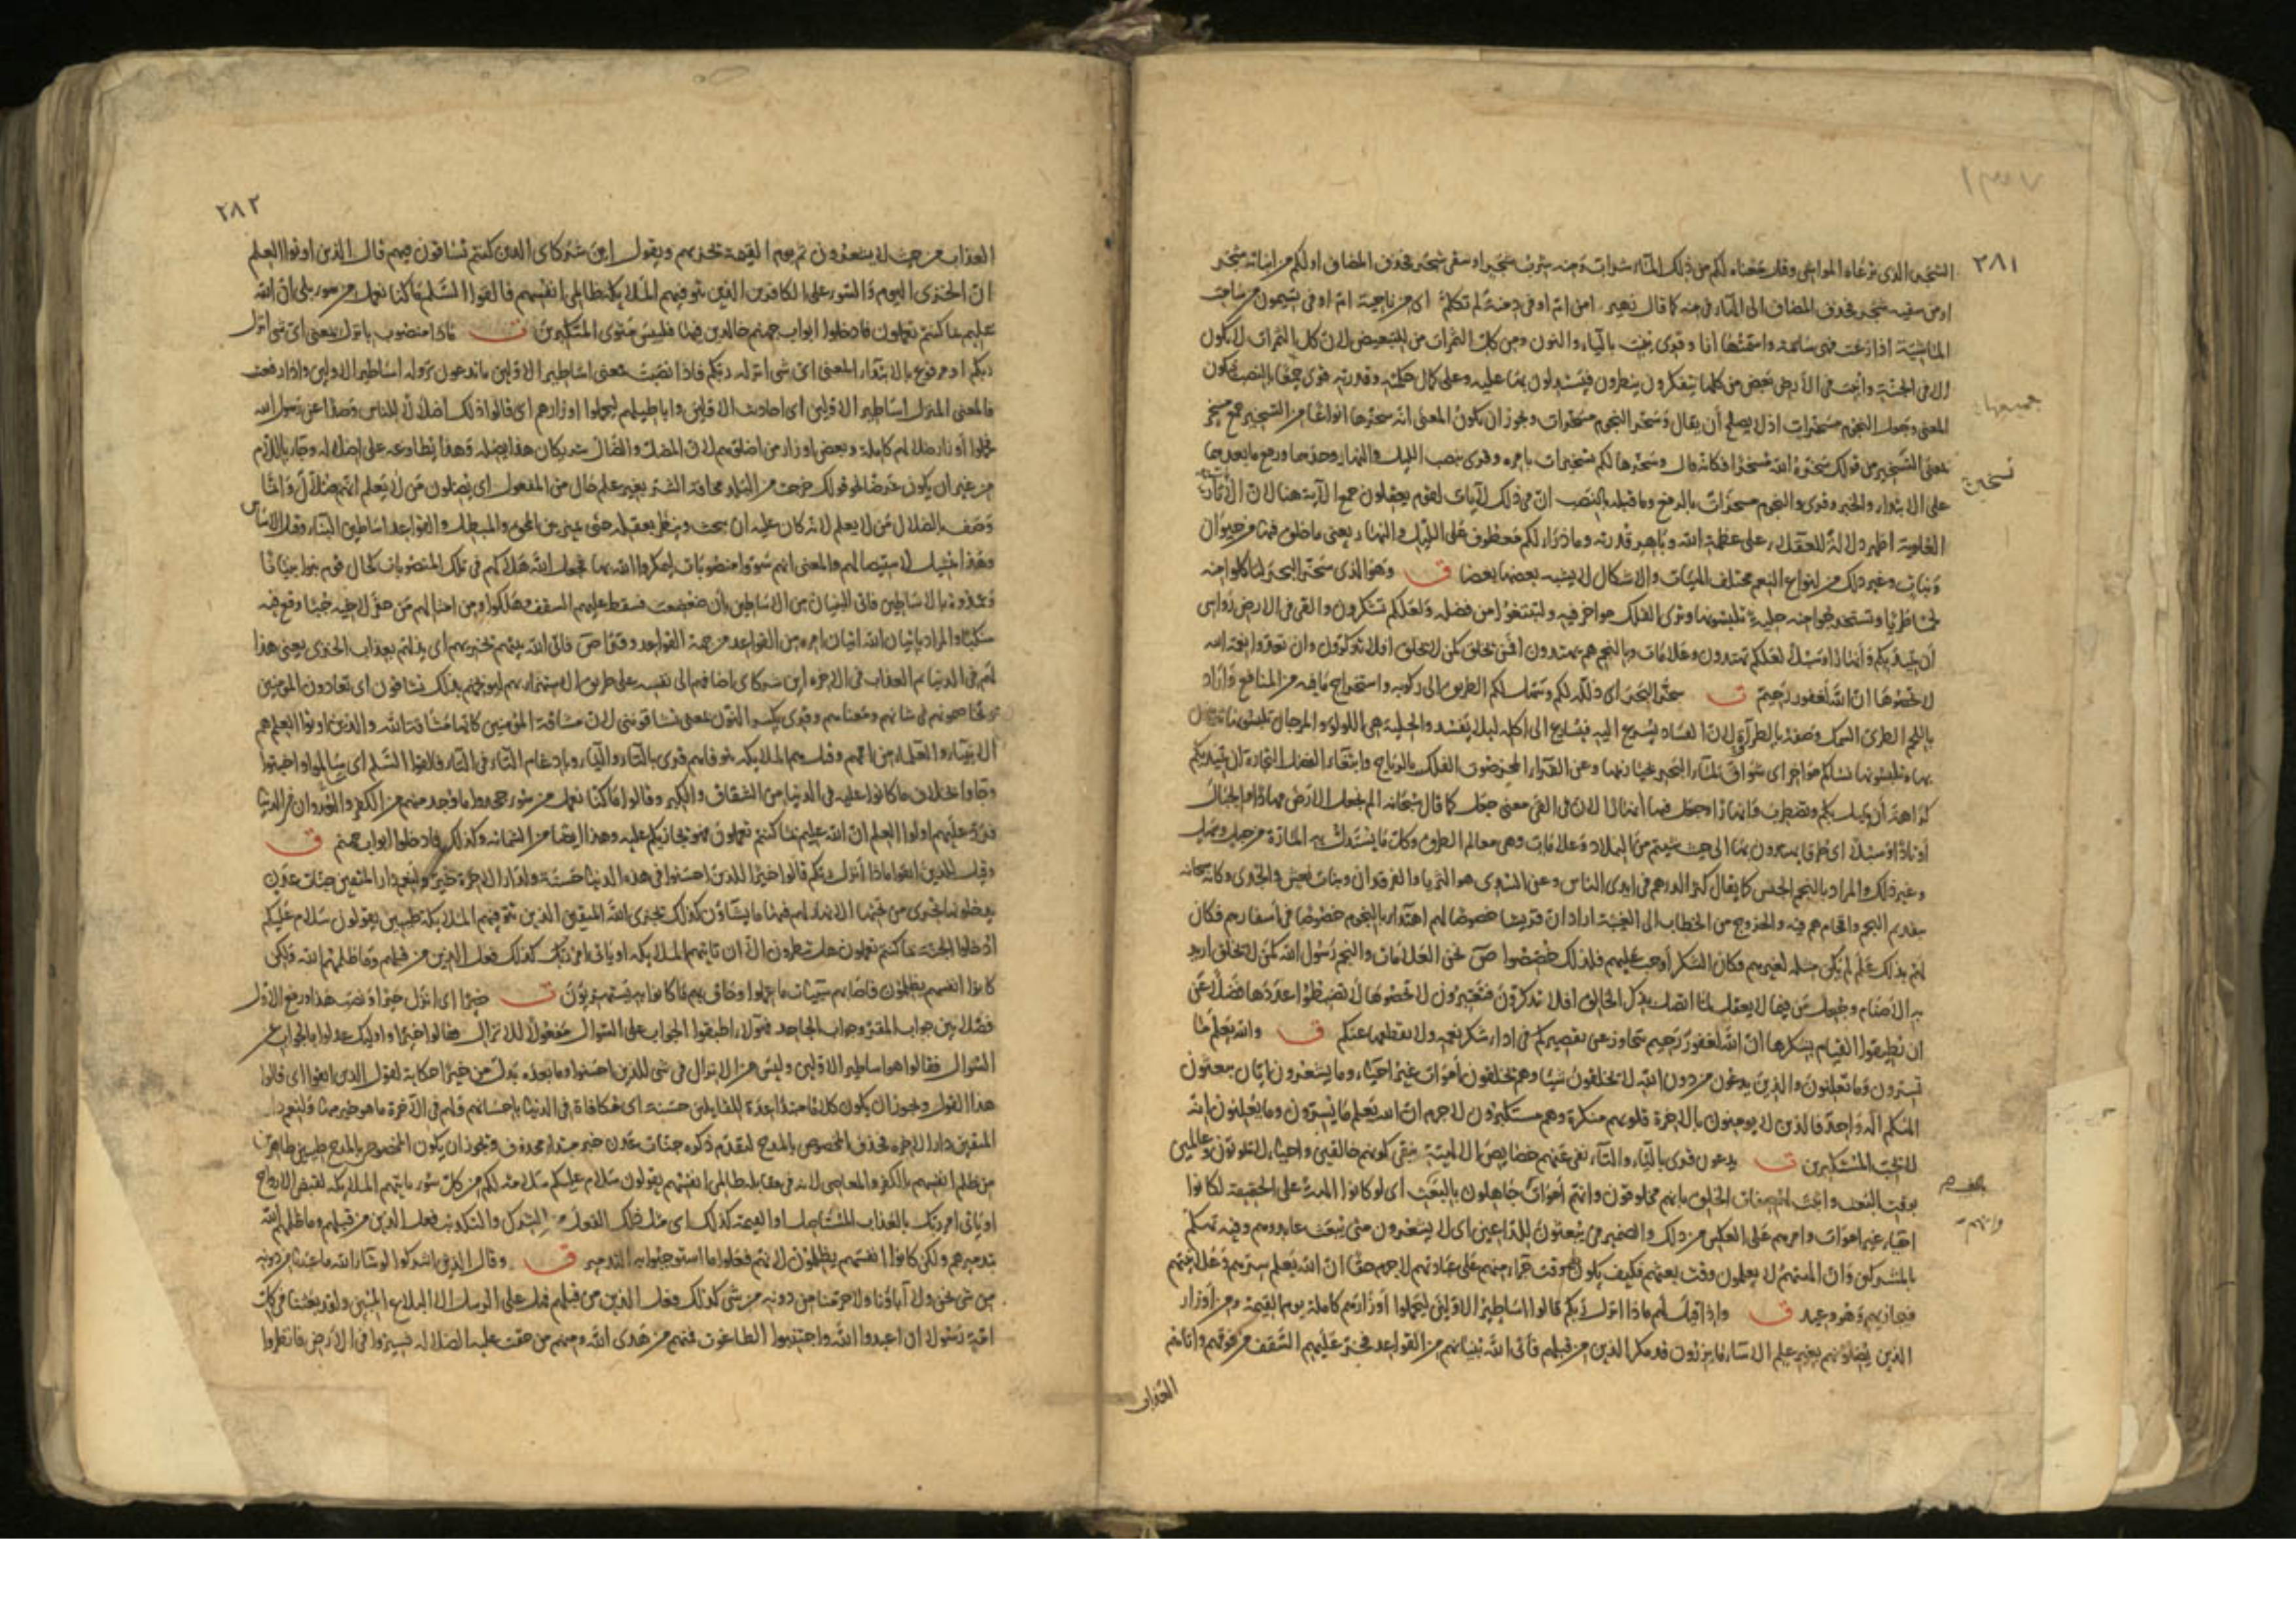 ٢٨١
الشجر الذى ترعاه المواشى وقيل معناه لكم من ذلك الماء شراب ومنه شرب شجر او سقى شجر فحذف المضاف او لكم من انباته شجر
او من سقيه شجر فحذف المضاف الى الهاء فى منه كما قال زهير امن ام اوفى دمنة لم تكلم اى من ناحية ام اوفى تسيمون من سامت
الماشية اذا رعت فهى سائمة واسمتها انا وقرى ينبت بالياء والنون ومن كل الثمرات من للتبعيض لان كل الثمرات لا يكون
الا فى الجنة وانبت فى الارض بعض من كلها يتفكرون ينظرون فيستدلون بها عليه وعلى كمال حكمته وقدرته
المعنى وجعل النجوم مسخرات اذ لا يصلح أن يقال وسخر النجوم مسخرات ويجوز ان يكون المعنى انه سخرها انواعا من التسخير جمع مسخر
بمعنى التسخير من قولك سخره الله مسخرا فكانه قال وسخرها لكم تسخيرات بامره وقرى بنصب الليل والنهار وحدهما ورفع ما بعدهما
على الابتداء والخبر وقرى والنجوم مسخرات بالرفع وما قبله بالنصب ان فى ذلك لآيات لقوم يعقلون جمع الآية هنا لان الآثار
العلوية اظهر دلالة للعقلاء على عظمة الله وباهر قدرته وما ذرأ لكم معطوف على الليل والنهار يعنى ما خلق فيها من حيوان
ونبات وغير ذلك من انواع النعم مختلف الهيئات والاشكال لا يشبه بعضها بعضا ق وهو الذى سخر البحر لتاكلوا منه
لحما طريا وتستخرجوا منه حلية تلبسونها وترى الفلك مواخر فيه ولتبتغوا من فضله ولعلكم تشكرون والقى فى الارض رواسى
أن تميد بكم وأنهارا وسبلا لعلكم تهتدون وعلامات وبالنجم هم يهتدون افمن يخلق كمن لا يخلق افلا تذكرون وان تعدوا نعمة الله
لا تحصوها ان الله لغفور رحيم ت سخر البحر اى ذلله لكم وسهل لكم الطريق الى ركوبه واستخراج ما فيه من المنافع واراد
باللحم الطرى السمك وصفه بالطراوة لان الفساد يسرع اليه فيسارع الى اكله لئلا يفسد والحلية هى اللولو والمرجان تلبسونها
كراهة أن يميل بكم وتضطرب وانهارا وجعل فيها انهارا لان فى القى معنى جعل كما قال سبحانه الم نجعل الارض مهادا والجبال
أوتادا وسبلا اى طرقا يهتدون بها الى حيث شيتم من البلاد وعلامات وهى معالم الطرق وكل ما يستدل به المارة من جبل وسهل
وغير ذلك والمراد بالنجم الجنس كما يقال كثر الدرهم فى ايدى الناس وعن السدى هو الثريا والفرقدان وبنات نعش والجدى وكانه سبحانه
بتقديم النجم واقحام هم فيه والخروج من الخطاب الى الغيبة اراد ان قريشا خصوصا لهم اهتداء بالنجوم خصوصا فى أسفارهم فكان
لهم بذلك علم لم يكن مثله لغيرهم فكان الشكر أوجب عليهم فلذلك خصصوا ص نحن العلامات والنجم رسول الله كمن لا يخلق اريد
به الاصنام
ان تطيقوا القيام بشكرها ان الله لغفور رحيم يتجاوز عن تقصيركم فى اداء شكر نعمه ولا يقطعها عنكم ق والله يعلم ما
تسرون وما تعلنون والذين يدعون من دون الله لا يخلقون شيئا وهم يخلقون أموات غير احياء وما يشعرون ايان يبعثون
الهكم اله واحد فالذين لا يومنون بالاخرة قلوبهم منكرة وهم مستكبرون لا جرم ان الله يعلم ما يسرون وما يعلنون انه
لا يحب المستكبرين ت يدعون قرى بالياء والتاء نفى عنهم خصايص الالهية بنفى كونهم خالقين واحياء لا يموتون وعالمين
بوقت البعث واثبت لهم صفات الخلق بانهم مخلوقون وانهم أموات جاهلون بالبعث اى لو كانوا الهة على الحقيقة لكانوا
احياء غير اموات وامرهم على العكس من ذلك والضمير فى يبعثون للداعين اى لا يشعرون متى تبعث عابدوهم وفيه تهكم
بالمشركين وان الهتهم لا يعلمون وقت بعثهم فكيف يكون لهم وقت جزاء منهم على عبادتهم لا جرم حقا ان الله يعلم سرهم وعلانيتهم
فيجازيهم وهو وعيد ق واذا قيل لهم ماذا انزل ربكم قالوا اساطير الاولين ليحملوا أوزارهم كاملة يوم القيمة ومن اوزار
الذين يضلونهم بغير علم الا ساء ما يزرون قد مكر الذين من قبلهم فأتى الله بنيانهم من القواعد فخر عليهم السقف من فوقهم واتاهم
العذاب
٢٨٢
العذاب من حيث لا يشعرون ثم يوم القيمة يخزيهم ويقول اين شركاى الذين كنتم تشاقون فيهم قال الذين اوتوا العلم
ان الخزى اليوم والسوء على الكافرين الذين تتوفيهم الملايكة ظالمى انفسهم فالقوا السلم ما كنا نعمل من سوء بلى ان الله
عليم بما كنتم تعملون فادخلوا ابواب جهنم خالدين فيها فلبيس مثوى المتكبرين ت ماذا منصوب بانزل بمعنى اى شى انزل
ربكم او مرفوع بالابتداء المعنى اى شى انزله ربكم فاذا نصبت فمعنى اساطير الاولين ما تدعون نزوله اساطير الاولين واذا رفعت
فالمعنى المنزل اساطير الاولين اى احاديث الاولين واباطيلهم ليحملوا اوزارهم اى قالوا ذلك اضلالا للناس وصدا عن رسول الله
فحملوا أوزار ضلالهم كاملة وبعض اوزار من اضلوهم لان المضل والضال شريكان هذا يضله وهذا يطاوعه على اضلاله وجاء باللام
من غير ان يكون غرضا نحو قولك خرجت من البلد مخافة الشر بغير علم حال من المفعول اى يضلون من لا يعلم انهم ضلال وانما
وصف بالضلال من لا يعلم لانه كان عليه ان يبحث وينظر بعقله حتى يميز بين المحق والمبطل والقواعد اساطين البناء وقيل الاساس
وهذا تمثيل لاستيصالهم والمعنى انهم سووا منصوبات ليمكروا الله بها فجعل الله هلاكهم فى تلك المنصوبات كحال قوم بنوا بنيانا
وعمدوه بالاساطين فاتى البنيان من الاساطين بأن ضعضعت فسقط عليهم السقف وهلكوا ومن امثالهم من حفر لاخيه جبا وقع فيه
منكبا والمراد باتيان الله اتيان امره من القواعد من جهة القواعد
لهم فى الدنيا ثم العذاب فى الاخره اين شركاى اضافهم الى نفسه على طريق الاستهزاء بهم ليوبخهم بذلك تشاقون اى تعادون المومنين
وتخاصمونهم فى شانهم ومعناهم وقرى بكسر النون بمعنى تشاقوننى لان مشاقة المؤمنين كانها مشاقة الله والذين اوتوا العلم هم
الانبياء والعلماء من اممهم وقيل هم الملايكه تتوفاهم قرى بالتاء والياء وبادغام التاء فى التاء فالقوا السلم اى سالموا واخبتوا
وجاوا بخلاف ما كانوا عليه فى الدنيا من الشقاق والكبر وقالوا ما كنا نعمل من سوء جحدوا ما وجد منهم من الكفر والعدوان فى الدنيا
فرد عليهم اولوا العلم ان الله عليم بما كنتم تعملون فهو يجازيكم عليه وهذا ايضا من الشماتة وكذلك فادخلوا ابواب جهنم ق
وقيل للذين اتقوا ماذا انزل ربكم قالوا خيرا للذين احسنوا فى هذه الدنيا حسنة ولدار الاخرة خير ولنعم دار المتقين جنات عدن
يدخلونها تجرى من تحتها الانهار لهم فيها ما يشاؤن كذلك يجزى الله المتقين الذين تتوفيهم الملايكة طيبين يقولون سلام عليكم
ادخلوا الجنة بما كنتم تعملون هل ينظرون الا ان تاتيهم الملايكه او ياتى امر ربك كذلك فعل الذين من قبلهم وما ظلمهم الله ولكن
كانوا انفسهم يظلمون فاصابهم سيئات ما عملوا وحاق بهم ما كانوا به يستهزؤن ت خيرا اى انزل خيرا ونصب هذا ورفع الاول
فصلا بين جواب المقر وجواب الجاحد فهولاء اطبقوا الجواب على السوال مفعولا للانزال فقالوا خيرا واوليك عدلوا بالجواب عن
السوال فقالوا هو اساطير الاولين وليس من الانزال فى شى للذين احسنوا وما بعده بدل من خيرا حكاية لقول الذين اتقوا اى قالوا
هذا القول ويجوز ان يكون كلاما مبتدأ عدة للقايلين حسنة اى مكافاة فى الدنيا باحسانهم ولهم فى الآخرة ما هو خير منها ولنعم دار
المتقين دار الاخره فحذف المخصوص بالمدح لتقدم ذكره جنات عدن خبر مبتدا محذوف ويجوز ان يكون المخصوص بالمدح طيبين طاهرين
من ظلم انفسهم بالكفر والمعاصى لانه فى مقابلة ظالمى انفسهم يقولون سلام عليكم سلامة لكم من كل سوء ياتيهم الملايكه لقبض الارواح
او ياتى امر ربك بالعذاب المستاصل او القيمة كذلك اى مثل ذلك الفعل من الشرك والتكذيب فعل الذين من قبلهم وما ظلمهم الله
بتدميرهم ولكن كانوا انفسهم يظلمون لانهم فعلوا ما استوجبوا به التدمير ق وقال الذين اشركوا لو شاء الله ما عبدنا من دونه
من شى نحن ولا آباؤنا ولا حرمنا من دونه من شى كذلك فعل الذين من قبلهم فهل على الرسل الا البلاغ المبين ولقد بعثنا فى كل
امة رسولا ان اعبدوا الله واجتنبوا الطاغوت فمنهم من هدى الله ومنهم من حقت عليه الضلالة فسيروا فى الارض فانظروا